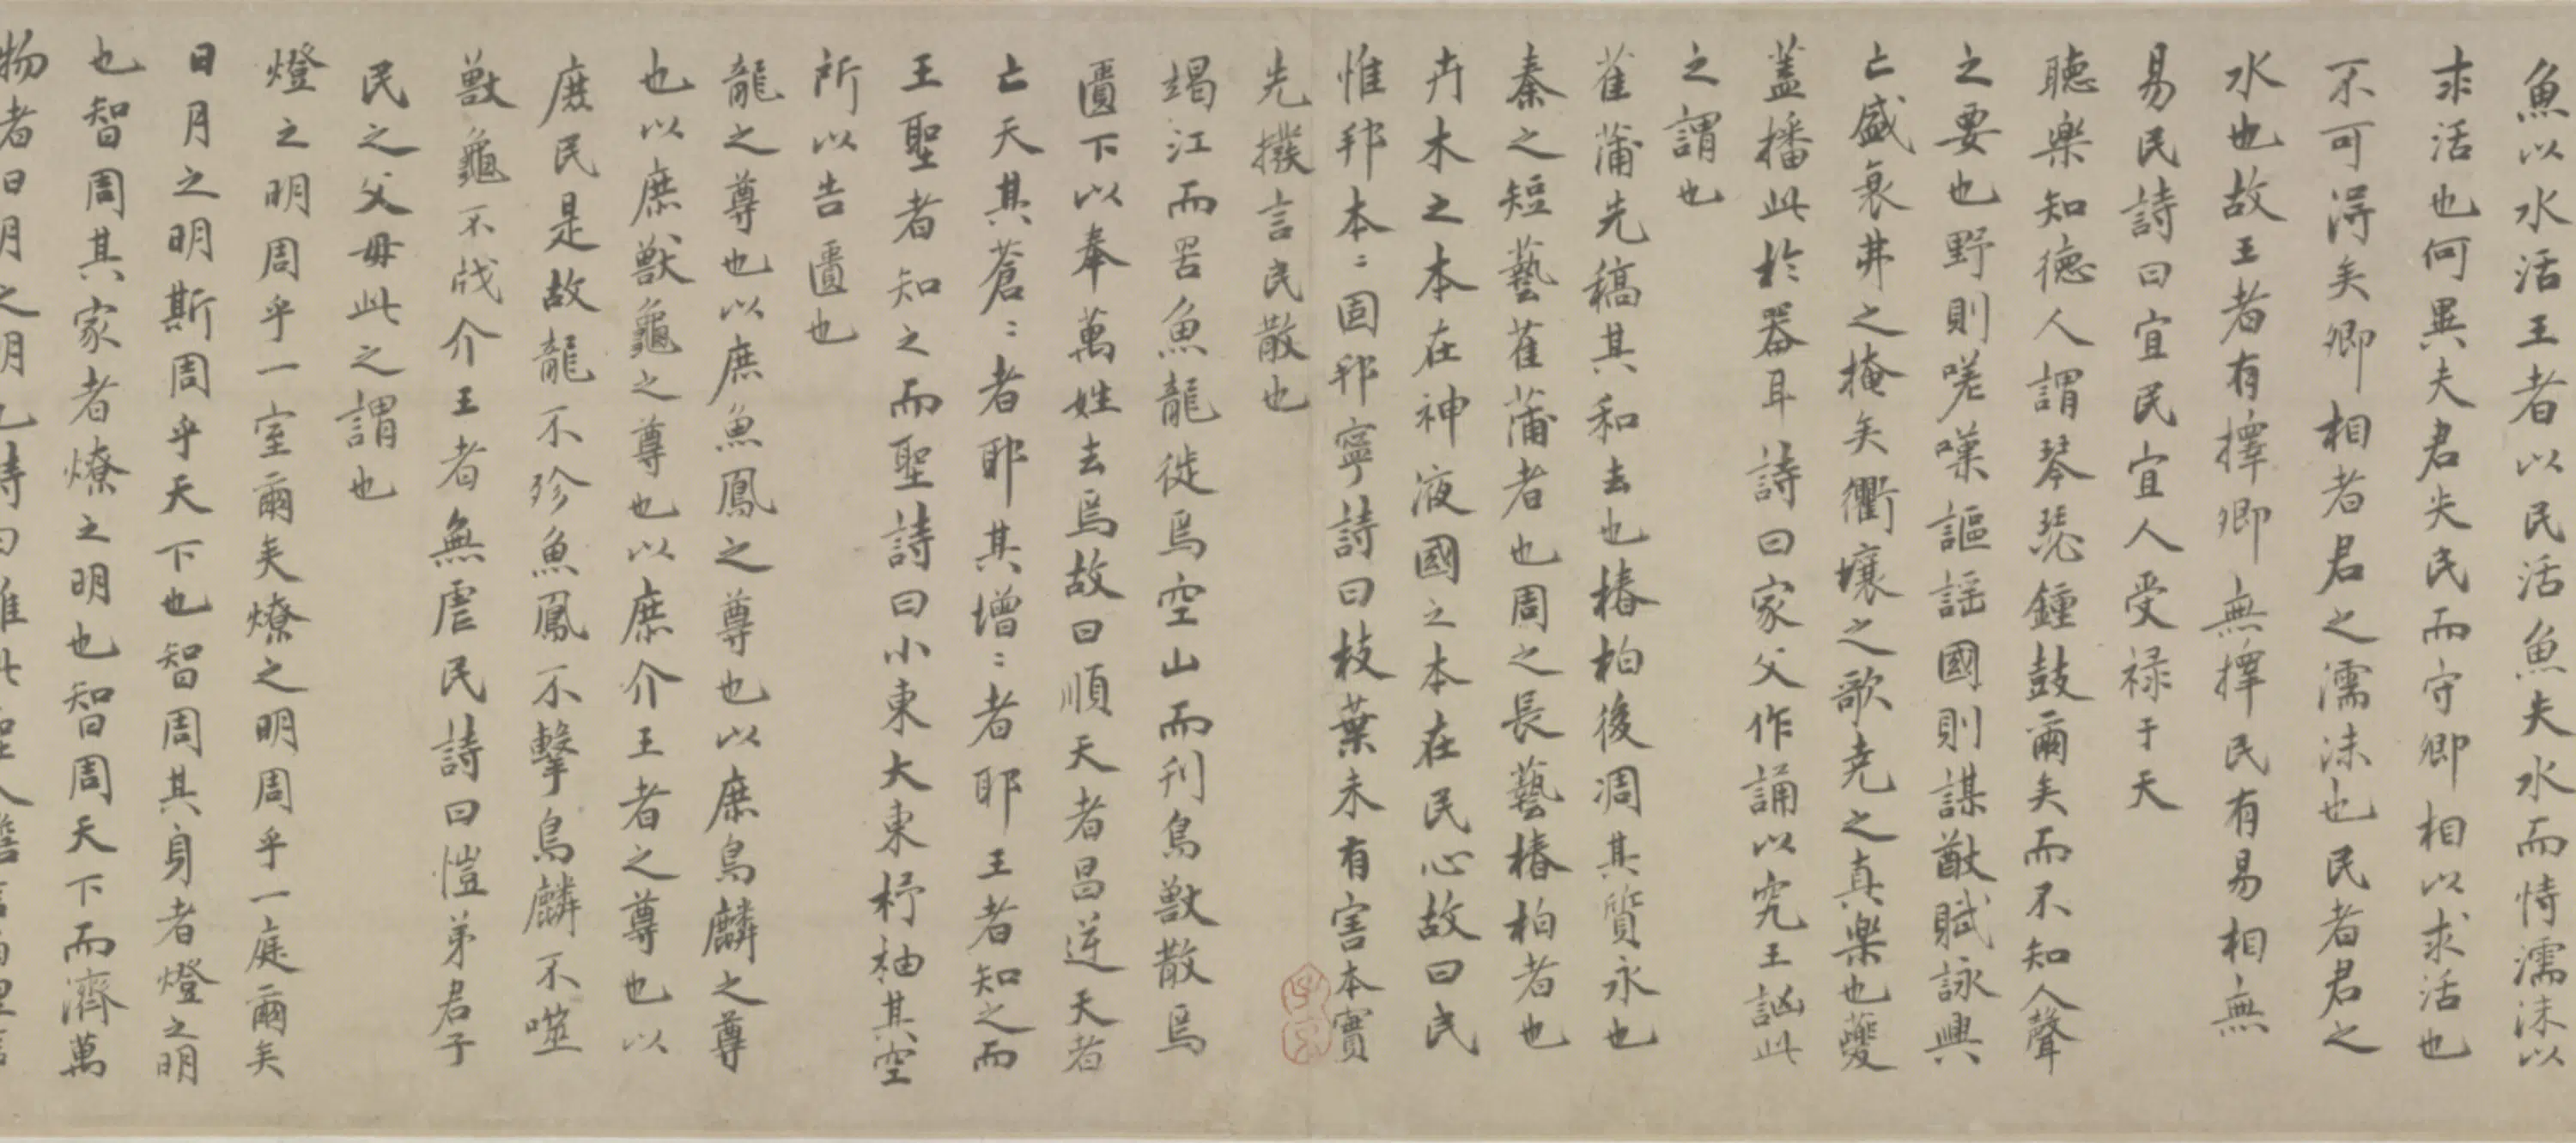 魚以水活王者以民活魚失水而恃濡沫以
求活也何異夫君失民而守卿相以求活也
不可得矣卿相者君之濡沫也民者君之
水也故王者有擇卿無擇民有易相無
易民詩曰宜民宜人受祿于天
聽樂知德人謂琴瑟鍾鼓爾矣而不知人聲
之要也野則嗟嘆謳謡國則謀猷賦詠興
亡盛衰弗之掩矣衢壤之歌堯之真樂也夔
蓋播此於器耳詩曰家父作誦以究王訩此
之謂也
萑蒲先稿其和去也椿柏後凋其質永也
秦之短藝萑蒲者也周之長藝椿柏者也
卉木之本在神液國之本在民心故曰民
惟邦本〻固邦寧詩曰枝葉未有害本實
先撥言民散也
竭江而罟魚龍徙焉空山而刋鳥獸散焉
匱下以奉萬姓去焉故曰順天者昌逆天者
亡天其蒼〻者耶其增〻者耶王者知之而
王聖者知之而聖詩曰小東大東杼柚其空
所以告匱也
龍之尊也以庶魚鳳之尊也以庶鳥麟之尊
也以庶獸龜之尊也以庶介王者之尊也以
庶民是故龍不殄魚鳳不擊鳥麟不噬
獸龜不戕介王者無虐民詩曰愷弟君子
民之父母此之謂也
燈之明周乎一室爾矣燎之明周乎一庭爾矣
日月之明斯周乎天下也智周其身者燈之明
也智周其家者燎之明也智周天下而濟萬
物者日月之明也詩曰維此聖人瞻言百里言